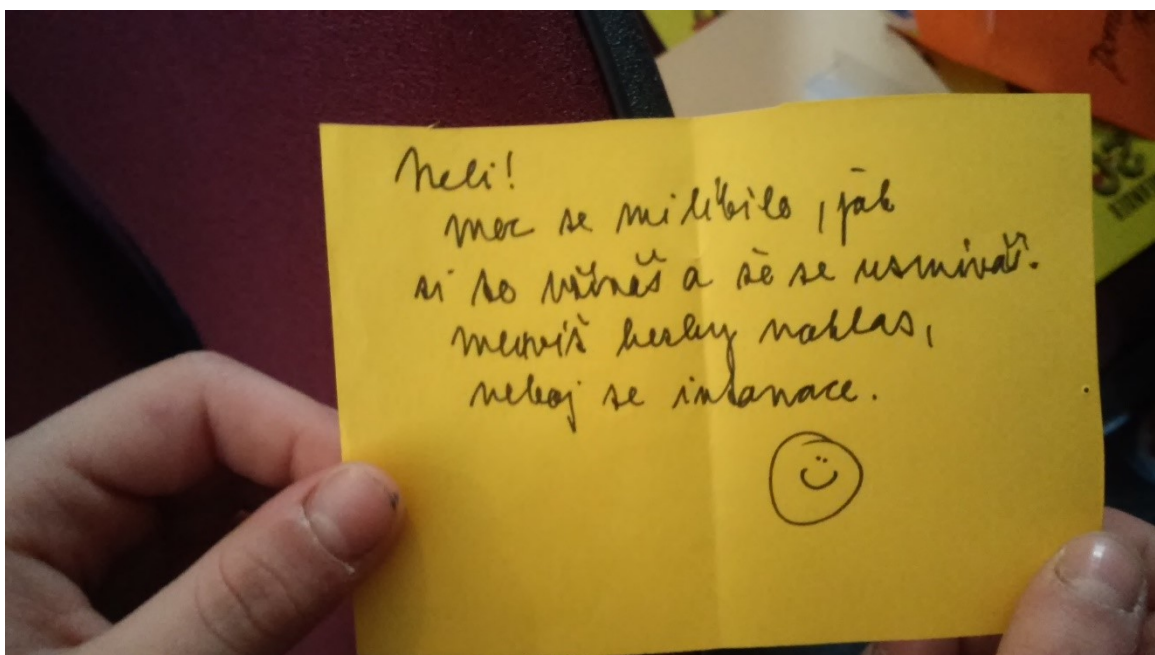 Neli!
moc se mi líbilo, jak
si to užíváš a že se usmíváš.
mluvíš hezky nahlas,
neboj se intonace.